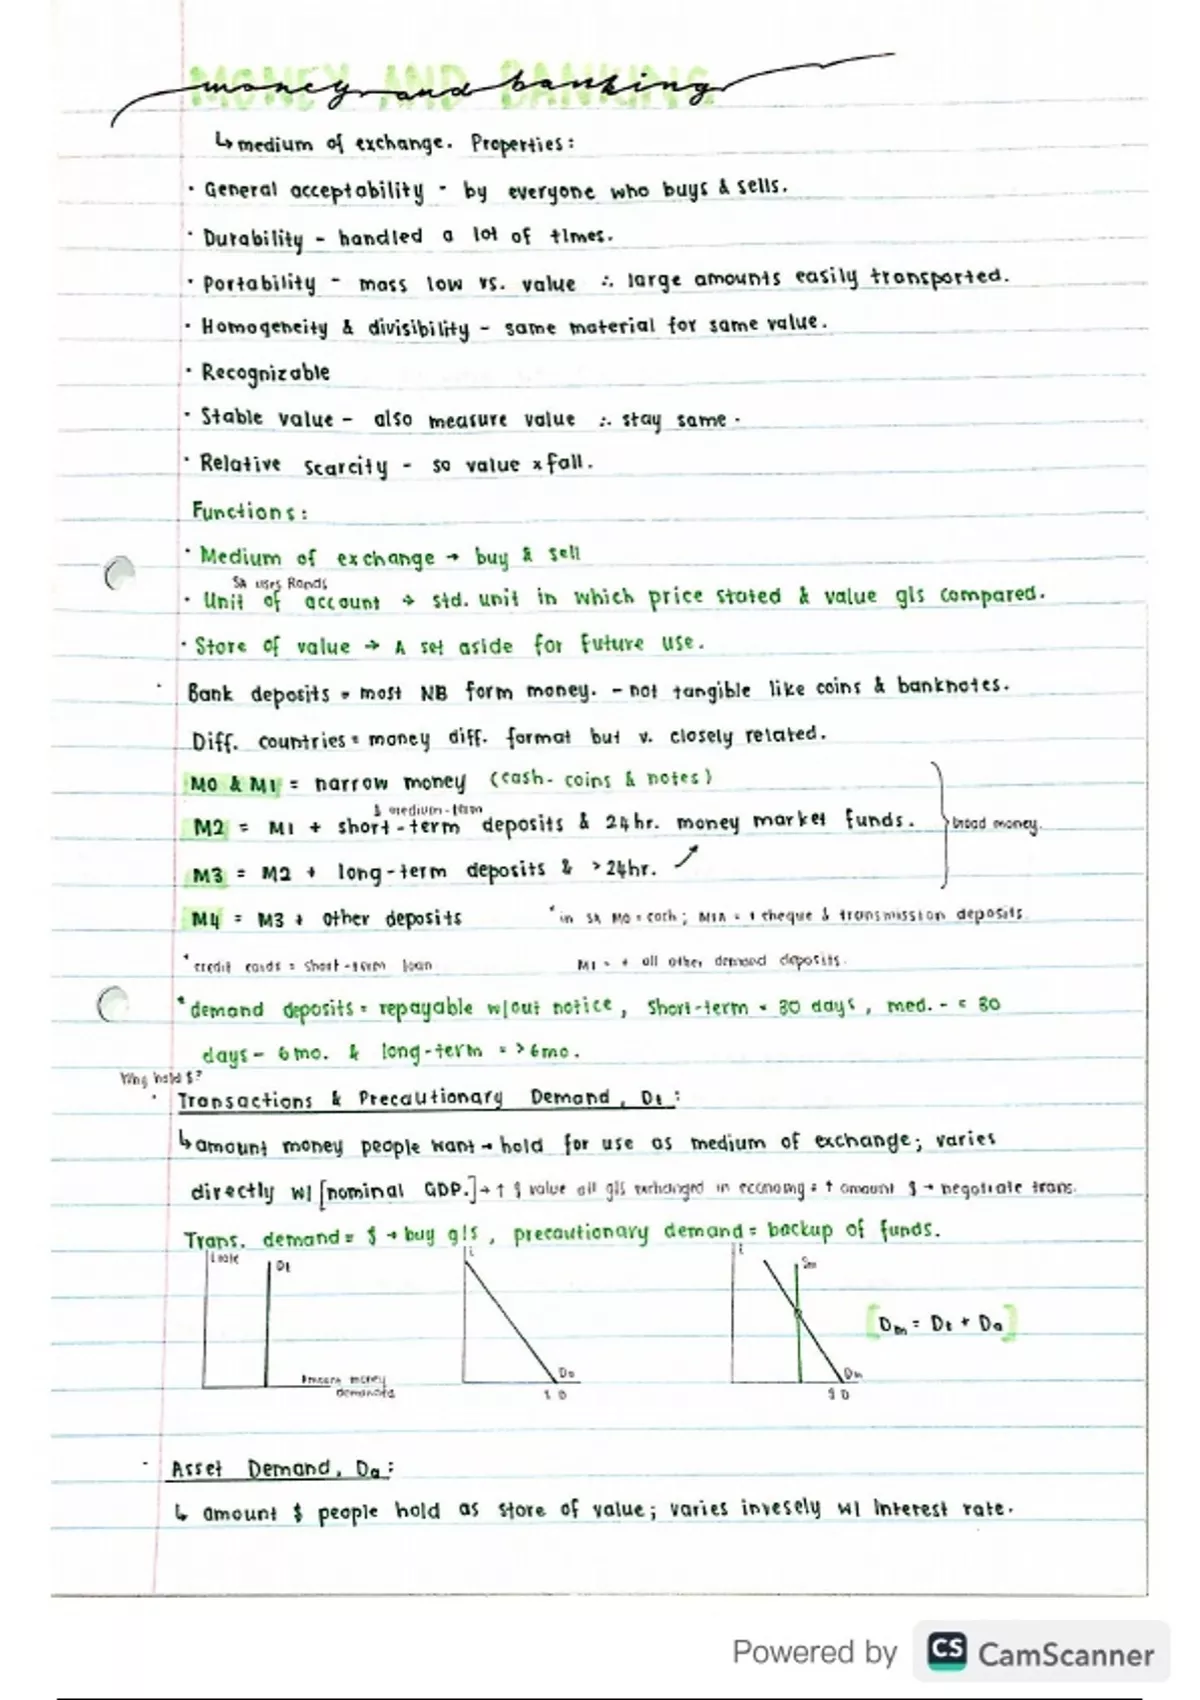 MONEY AND BANKING
money and banking
↳ medium of exchange. Properties:
· General acceptability - by everyone who buys & sells.
· Durability - handled a lot of times.
· Portability - mass low vs. value ∴ large amounts easily transported.
· Homogeneity & divisibility - same material for same value.
· Recognizable
· Stable value - also measure value ∴ stay same.
· Relative scarcity - so value x fall.
Functions:
· Medium of exchange → buy & sell
SA uses Rands
· Unit of account → std. unit in which price stated & value g/s compared.
· Store of value → A set aside for future use.
· Bank deposits = most NB form money. - not tangible like coins & banknotes.
Diff. countries = money diff. format but v. closely related.
M0 & M1 = narrow money (cash - coins & notes)
& medium-term
M2 = M1 + short-term deposits & 24hr. money market funds.
broad money.
M3 = M2 + long-term deposits & >24hr.
M4 = M3 + other deposits
* in SA M0 = cash; M1A = + cheque & transmission deposits
* credit cards = short-term loan
M1 = + all other demand deposits.
* demand deposits = repayable w/out notice, short-term < 30 days, med. - < 30
days - 6mo. & long-term = >6mo.
Why hold $?
· Transactions & Precautionary Demand, Dt:
↳ amount money people want → hold for use as medium of exchange; varies
directly w/ [nominal GDP.] → ↑ $ value all g/s exchanged in economy = ↑ amount $ → negotiate trans.
Trans. demand = $ → buy g/s, precautionary demand = backup of funds.
i rate
Dt
money
demanded
i
Da
$ D
i
Sm
Dm
$ D
[Dm = Dt + Da]
· Asset Demand, Da:
↳ amount $ people hold as store of value; varies invesely w/ interest rate.
Powered by CS CamScanner